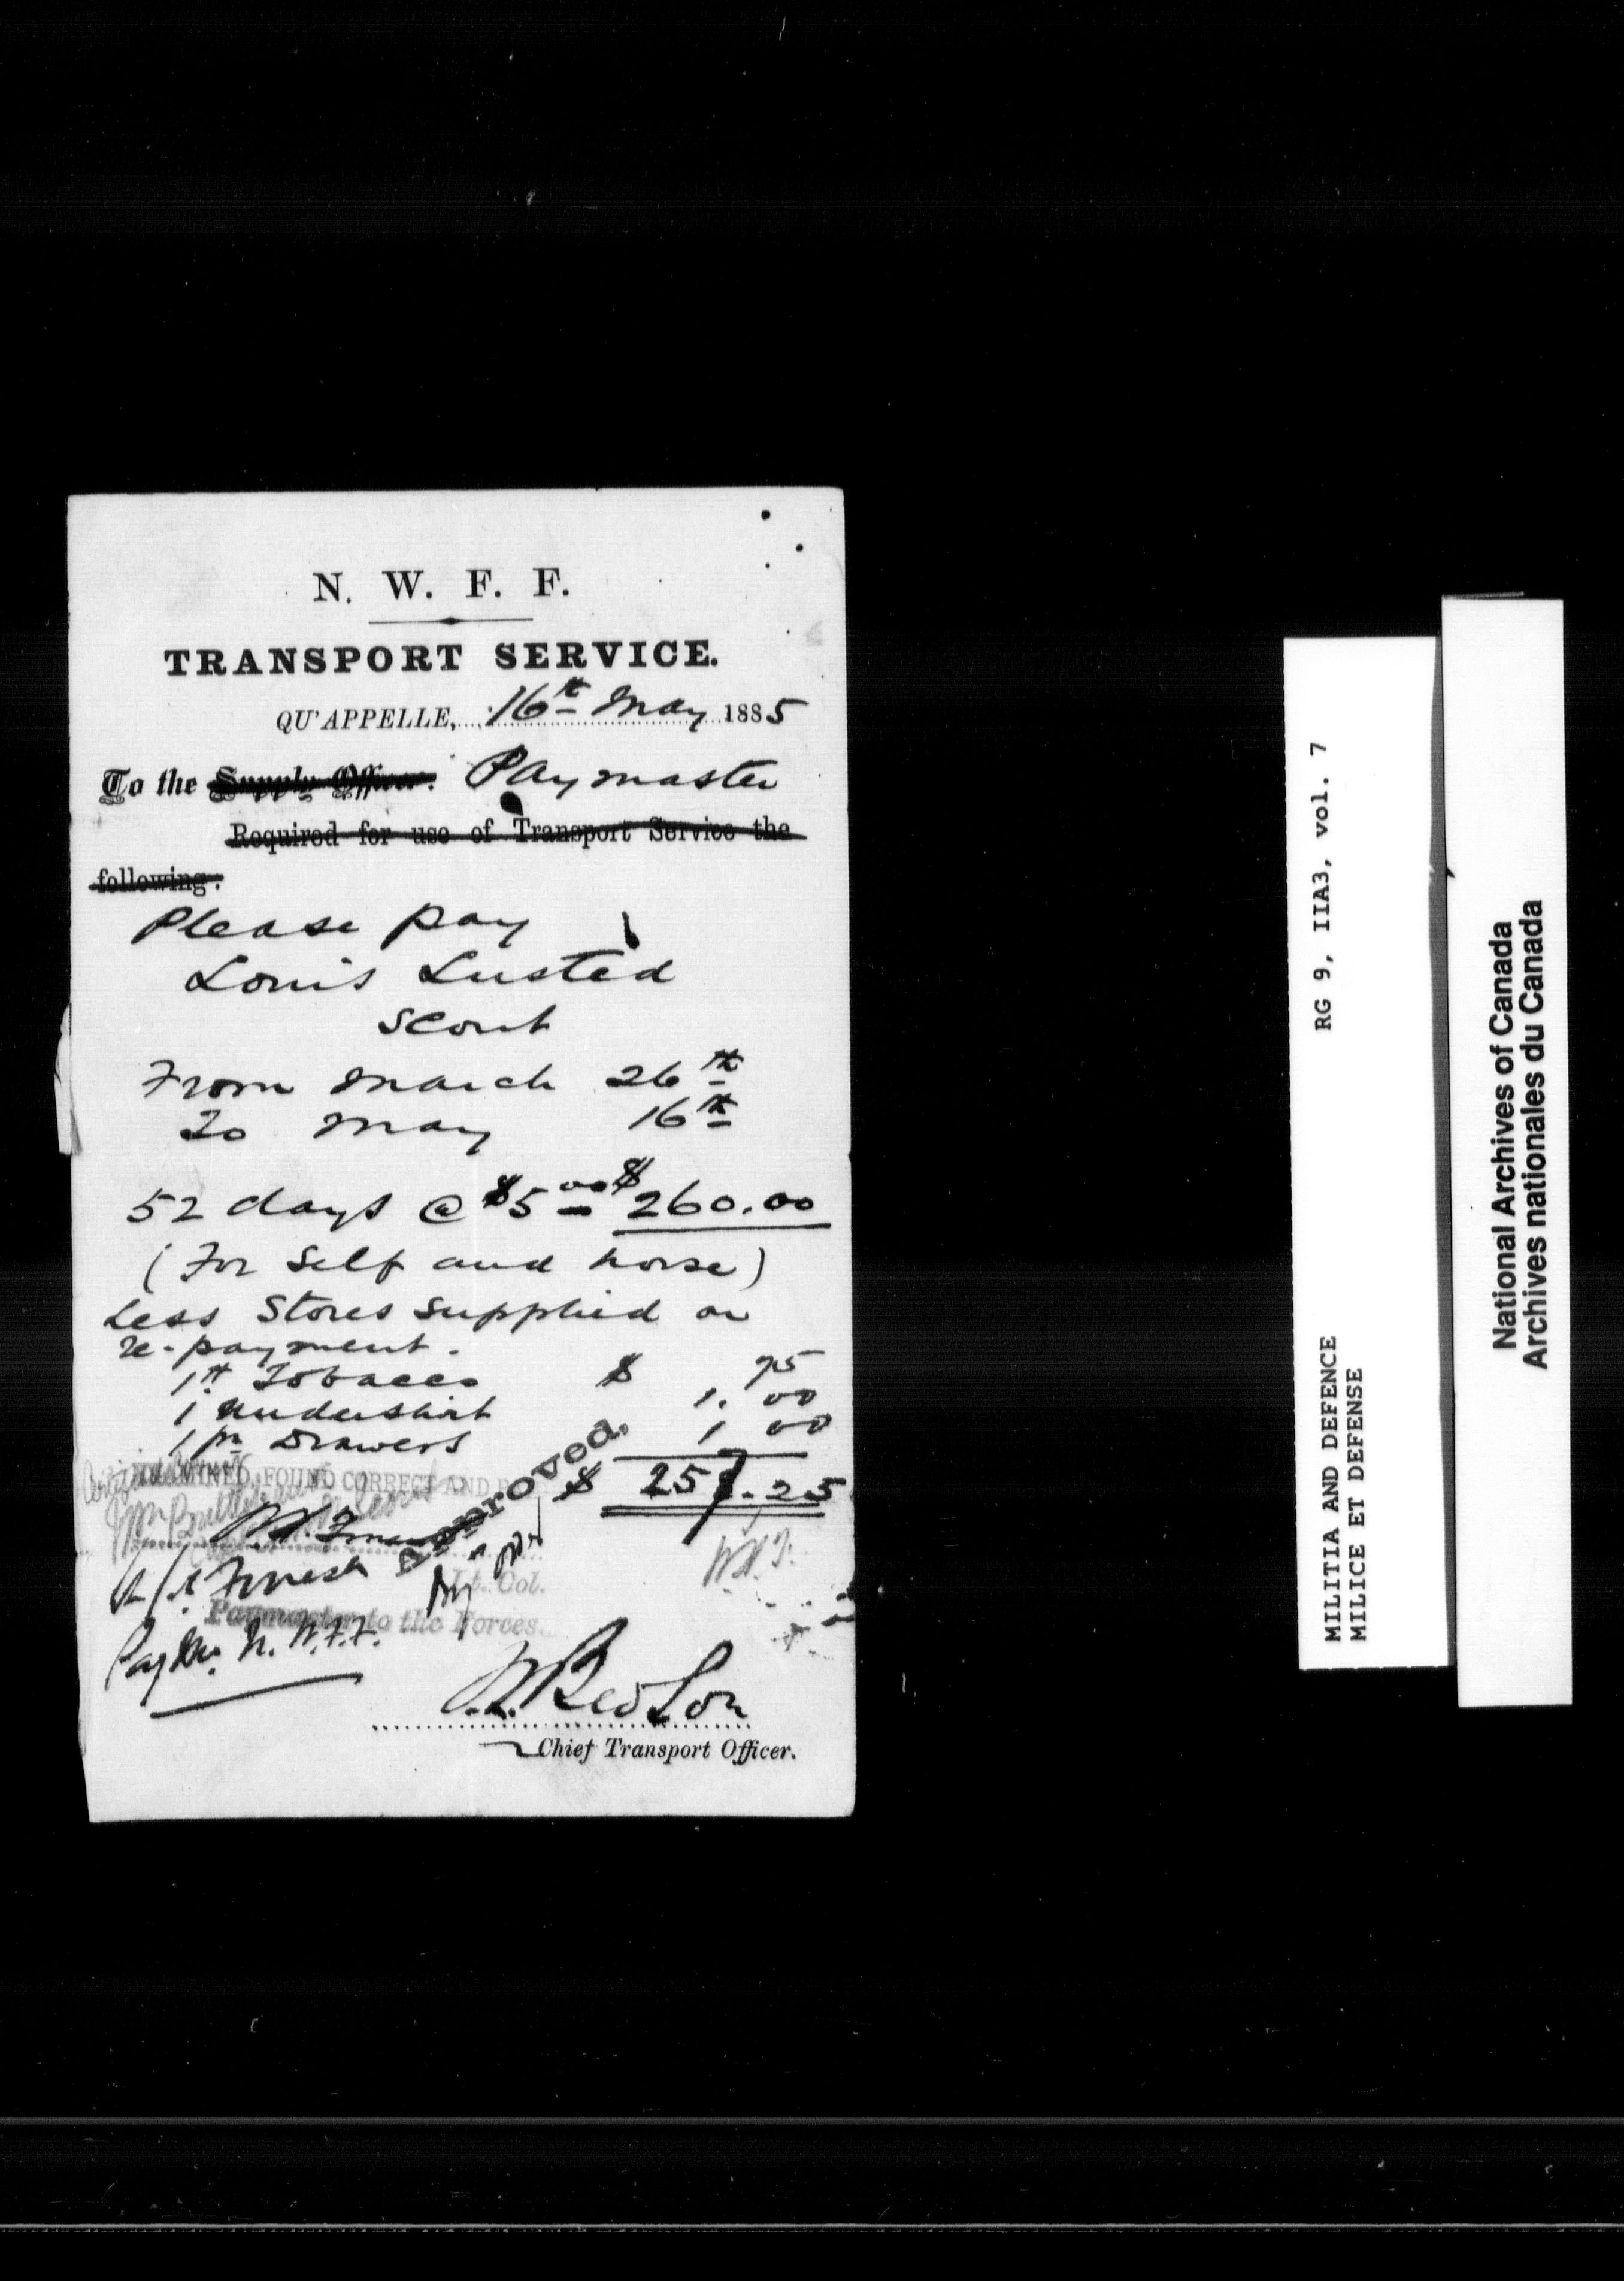 N. W. F. F.
TRANSPORT SERVICE.
QU'APPELLE, 16th May 1885
To the Supply Officer. Paymaster
Required for use of Transport Service the
following:
Please pay
Louis Lusted
Scout
From March 26th
To May 16th
52 days @ $5 00 $260.00
(For Self and horse)
Less Stores supplied on
re-payment.
1 Tobacco $ 75
1 undershirt 1. 00
1 pr Drawers 1 00
$ 257.25
EXAMINED, FOUND CORRECT AND
Approved.
Lt. Col.
Paymaster to the Forces.
Paymr. N. W. F. F.
W.H.J.
Chief Transport Officer.
MILITIA AND DEFENCE RG 9, IIA3, vol. 7
MILICE ET DEFENSE
National Archives of Canada
Archives nationales du Canada